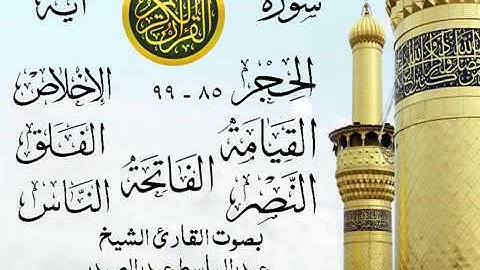 سورة آية
القرآن الكريم
الحجر ٨٥ - ٩٩ الإخلاص
القيامة الفلق
الفاتحة
النصر الناس
بصوت القارئ الشيخ
عبدالباسط عبدالصمد